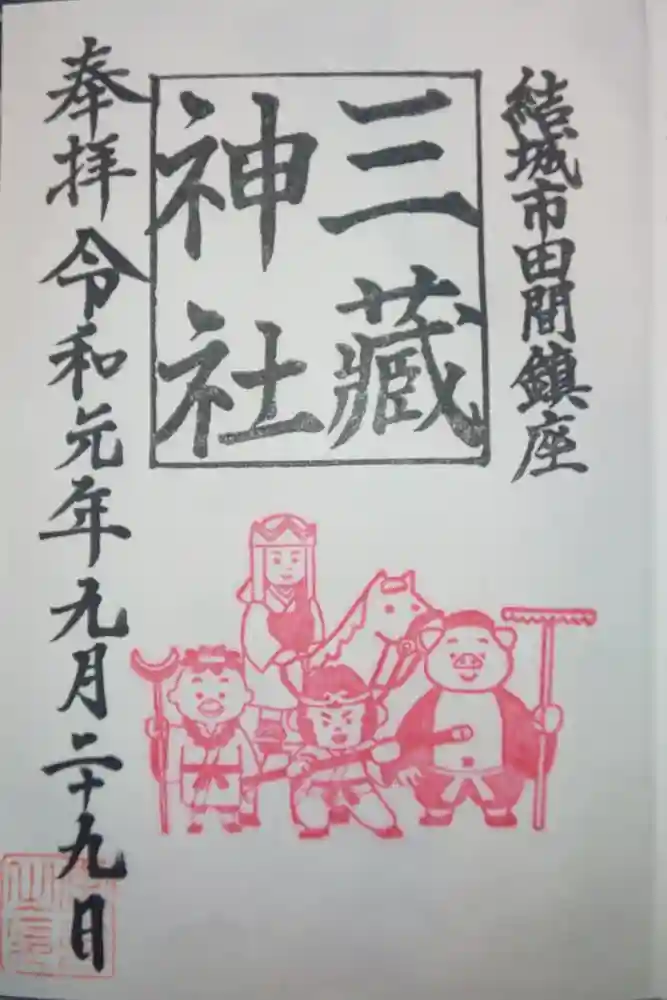 結城市田間鎮座
三藏
神社
奉拝 令和元年九月二十九日